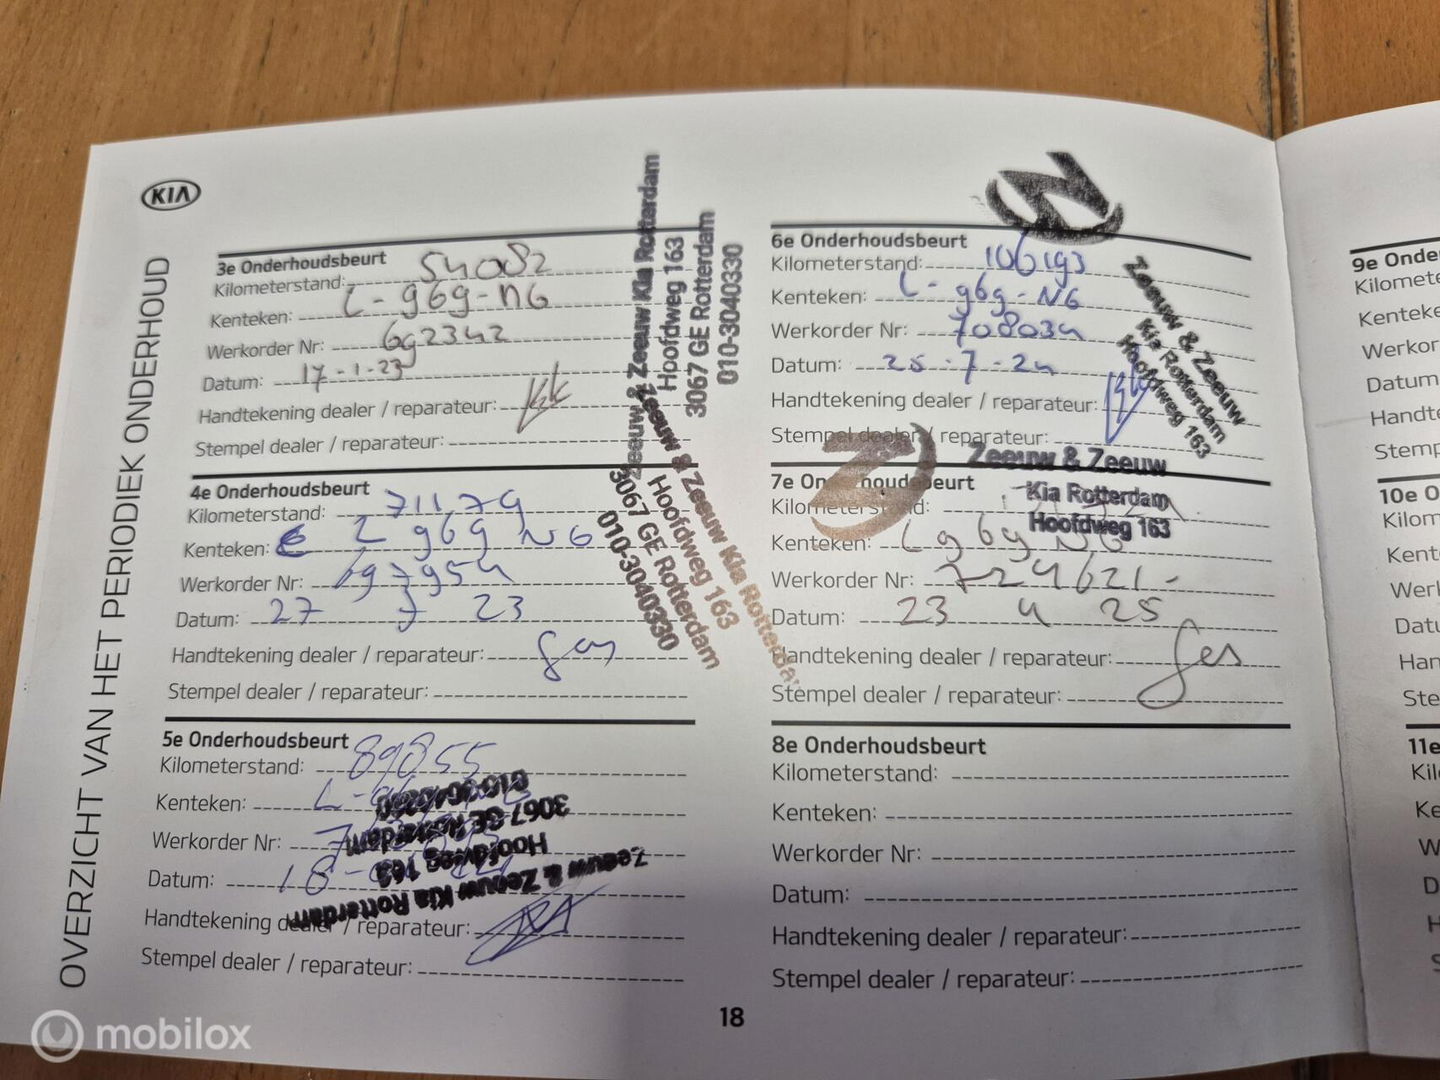 KIA
OVERZICHT VAN HET PERIODIEK ONDERHOUD
3e Onderhoudsbeurt
Kilometerstand: 54082
Kenteken: L-969-NG
Werkorder Nr: 692342
Datum: 17-1-23
Handtekening dealer / reparateur:
Stempel dealer / reparateur:
Zeeuw & Zeeuw Kia Rotterdam
Hoofdweg 163
3067 GE Rotterdam
010-3040330
4e Onderhoudsbeurt
Kilometerstand: 71179
Kenteken: L 969 NG
Werkorder Nr: 697954
Datum: 27 7 23
Handtekening dealer / reparateur:
Stempel dealer / reparateur:
Zeeuw & Zeeuw Kia Rotterdam
Hoofdweg 163
3067 GE Rotterdam
010-3040330
5e Onderhoudsbeurt
Kilometerstand: 89855
Kenteken:
Werkorder Nr:
Datum: 18-
Handtekening dealer / reparateur:
Stempel dealer / reparateur:
Zeeuw & Zeeuw Kia Rotterdam
Hoofdweg 163
3067 GE Rotterdam
010-3040330
6e Onderhoudsbeurt
Kilometerstand: 106193
Kenteken: L-969-NG
Werkorder Nr: 708034
Datum: 25-7-24
Handtekening dealer / reparateur:
Stempel dealer / reparateur:
Zeeuw & Zeeuw
Kia Rotterdam
Hoofdweg 163
7e Onderhoudsbeurt
Kilometerstand:
Kenteken: L 969 NG
Werkorder Nr: 724621-
Datum: 23 4 25
Handtekening dealer / reparateur:
Stempel dealer / reparateur:
Zeeuw & Zeeuw
Kia Rotterdam
Hoofdweg 163
8e Onderhoudsbeurt
Kilometerstand:
Kenteken:
Werkorder Nr:
Datum:
Handtekening dealer / reparateur:
Stempel dealer / reparateur:
18
9e Onde
Kilomete
Kenteke
Werkor
Datum
Handte
Stemp
10e O
Kilom
Kent
Werl
Datu
Han
Ste
11e
Kil
Ke
W
D
H
S
mobilox